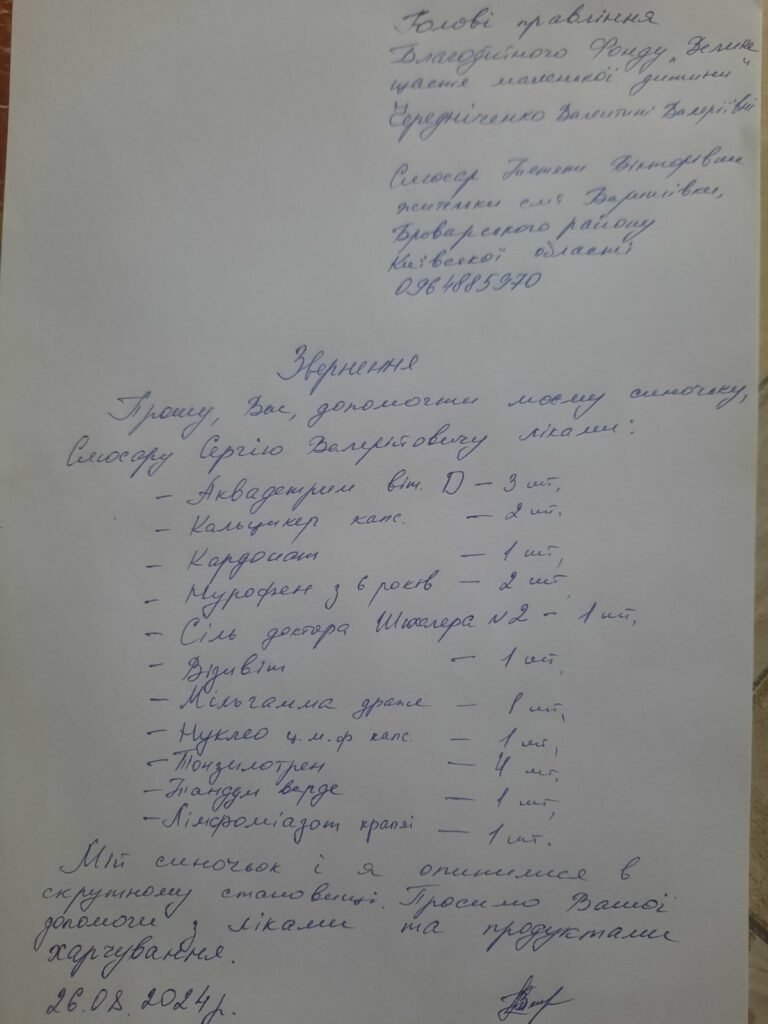 Голові правління
Благодійного Фонду „Велике
щастя маленької дитини"
Чередніченко Валентині Валеріївні
Слюсар Тетяни Вікторівни
жительки смт Баришівки,
Броварського району
Київської області
0964885970
Звернення
Прошу, Вас, допомогти моєму синочку,
Слюсару Сергію Валерійовичу ліками:
– Аквадетрим віт. D – 3 шт,
– Кальцикер капс. – 2 шт.
– Кардонат – 1 шт,
– Нурофен з 6 років – 2 шт,
– Сіль доктора Шюслера №2 – 1 шт,
– Візивіт – 1 шт,
– Мільгамма драже – 1 шт,
– Нуклео ц.м.ф капс. – 1 шт,
– Тонзилотрен – 4 шт,
– Тандум верде – 1 шт,
– Лімфоміазот краплі – 1 шт.
Мій синочок і я опинилися в
скрутному становищі. Просимо Вашої
допомоги з ліками та продуктами
харчування.
26.08.2024р.